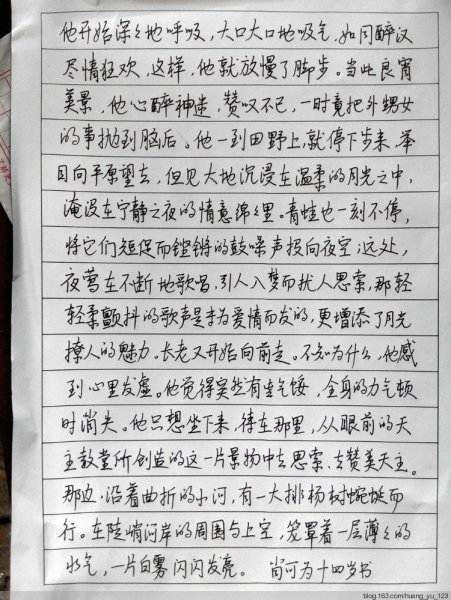 他开始深々地呼吸，大口大口地吸气，如同醉汉
尽情狂欢，这样，他就放慢了脚步。当此良宵
美景，他心醉神迷，赞叹不已，一时竟把外甥女
的事抛到脑后。他一到田野上，就停下步来，举
目向平原望去，但见大地沉浸在温柔的月光之中，
淹没在宁静之夜的情意绵々里。青蛙也一刻不停，
将它们短促而铿锵的鼓噪声投向夜空；远处，
夜莺在不断地歌唱，引人入梦而扰人思索，那轻
轻柔颤抖的歌声是专为爱情而发的，更增添了月光
撩人的魅力。长老又开始向前走。不知为什么，他感
到心里发虚。他觉得突然有生气馁，全身的力气顿
时消失。他只想坐下来，待在那里，从眼前的天
主教堂所创造的这一片景物中去思索、去赞美天主。
那边，沿着曲折的小河，有一大排杨树蜿蜒而
行。在陡峭河岸的周围与上空，笼罩着一层薄々的
水气，一片白雾闪闪发亮。 尚可为十四岁书
blog.163.com/huang_yu_123